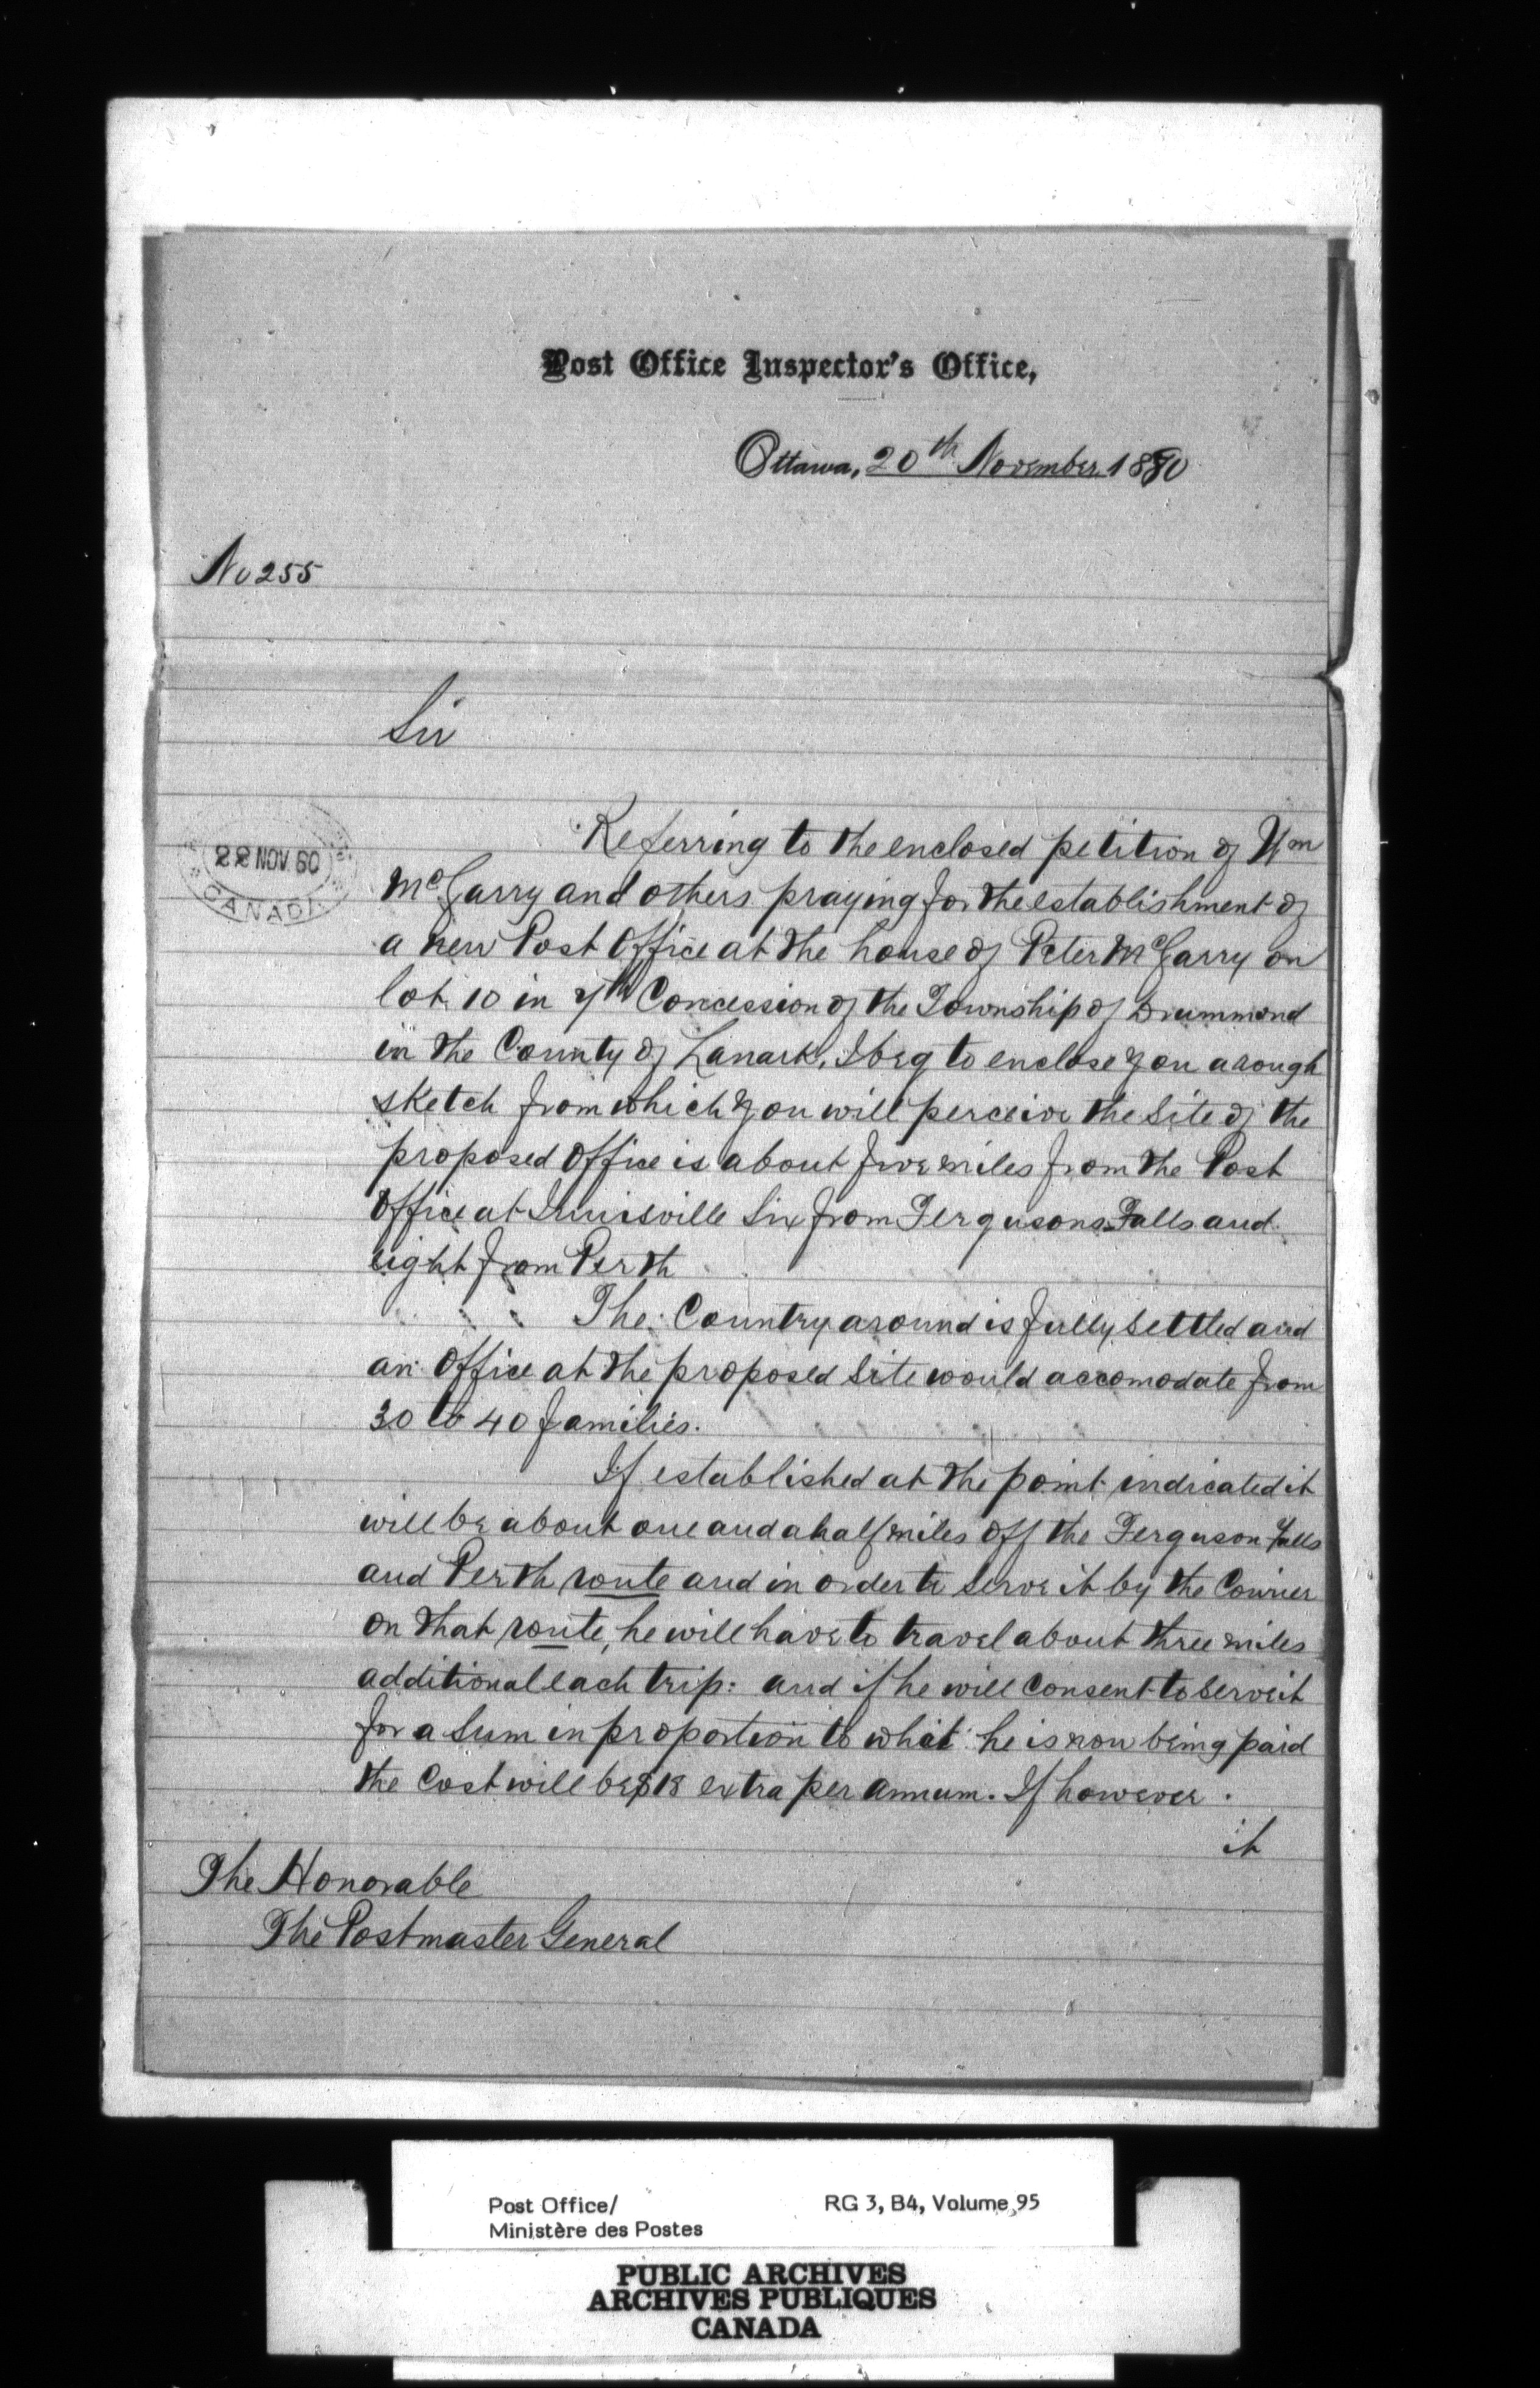 Post Office Inspector's Office,
Ottawa, 20th November 1880
No 255
Sir
22 NOV 80
CANADA
Referring to the enclosed petition of Wm
McGarry and others praying for the establishment of
a new Post Office at the house of Peter McGarry on
lot 10 in 7th Concession of the Township of Drummond
in the County of Lanark, I beg to enclose you a rough
sketch from which you will perceive the Site of the
proposed Office is about five miles from the Post
Office at Innisville Six from Fergusons Falls and
eight from Perth
The Country around is fully settled and
an Office at the proposed Site would accomodate from
30 to 40 families.
If established at the point indicated it
will be about one and a half miles off the Ferguson Falls
and Perth route and in order to serve it by the Courier
on that route, he will have to travel about three miles
additional each trip: and if he will Consent to serve it
for a Sum in proportion to what he is now being paid
the Cost will be $18 extra per annum. If however
it
The Honorable
The Postmaster General
Post Office/
Ministère des Postes
RG 3, B4, Volume 95
PUBLIC ARCHIVES
ARCHIVES PUBLIQUES
CANADA